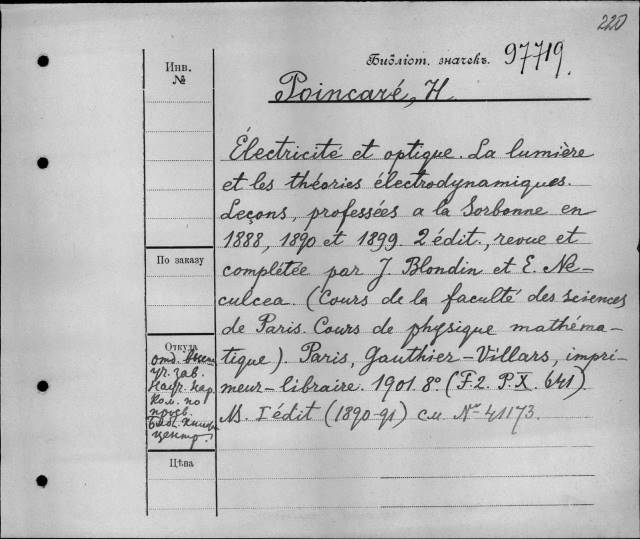 220
Библіот. значекъ. 97719.
Инв. №
Poincaré, H.
Électricité et optique. La lumière
et les théories électrodynamiques.
Leçons, professées a la Sorbonne en
1888, 1890 et 1899. 2 édit., revue et
complétée par J. Blondin et E. Ne-
culcea. (Cours de la faculté des sciences
de Paris. Cours de physique mathéma-
tique). Paris, Gauthier-Villars, impri-
meur-libraire. 1901. 8° (F.2. P.X. 641).
I édit (1890-91) см. № 41173.
По заказу
Откуда
отд.
уч. зав.
Нар.
ком. по
просв.
центр.
Цѣна